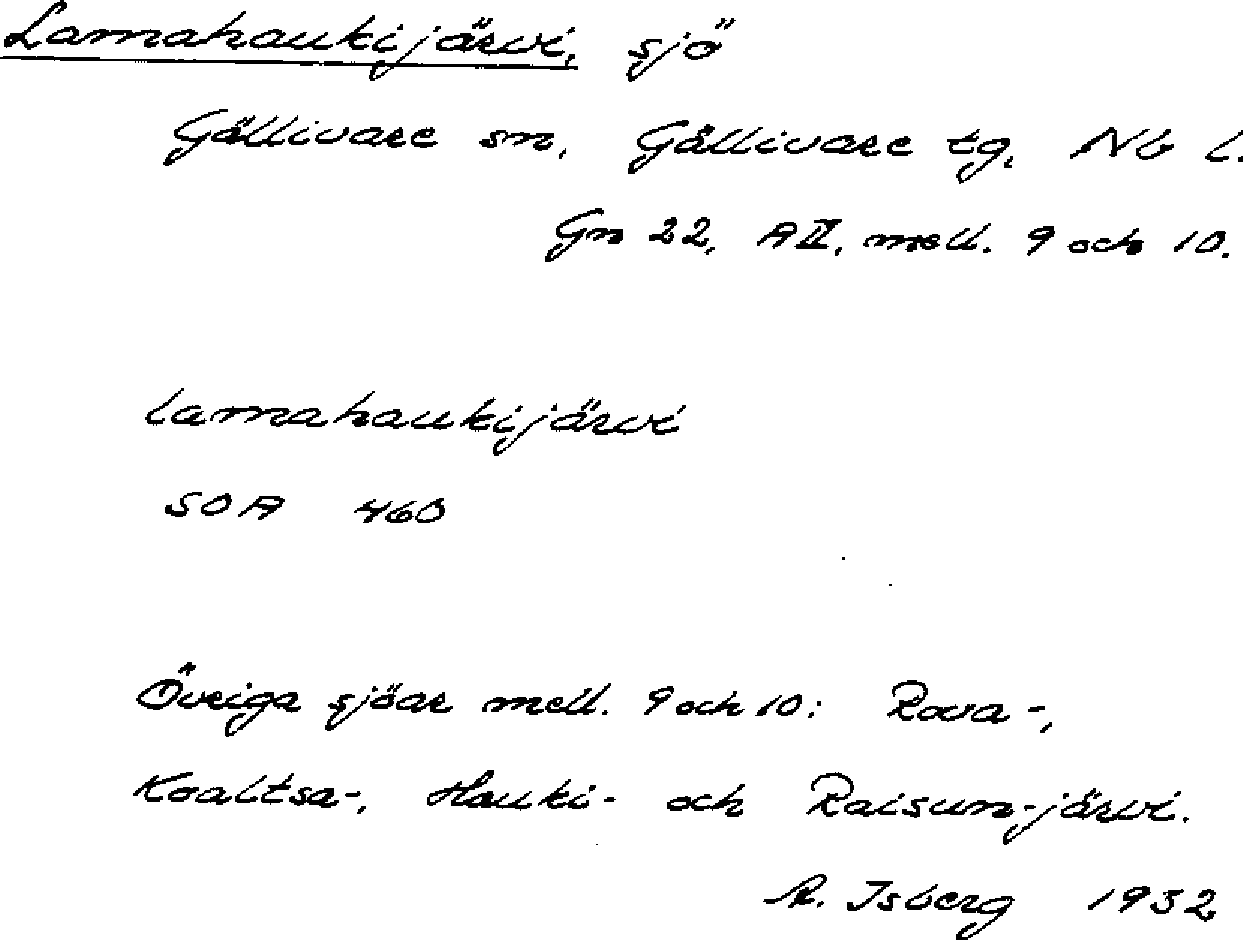 Lamahaukijärvi, sjö
Gällivare sn, Gällivare tg, Nb l.
Gn 22, A II, mell. 9 och 10.
Lamahaukijärvi
SOA 460
Övriga sjöar mell. 9 och 10: Rova-,
Koaltsa-, Hauki- och Raisun-järvi.
R. Isberg 1932